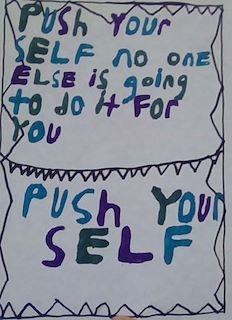 PUSh YOUR
SELF no one
ELSE is going
to do it FOR
YOU
PUSh YOUr
SELF